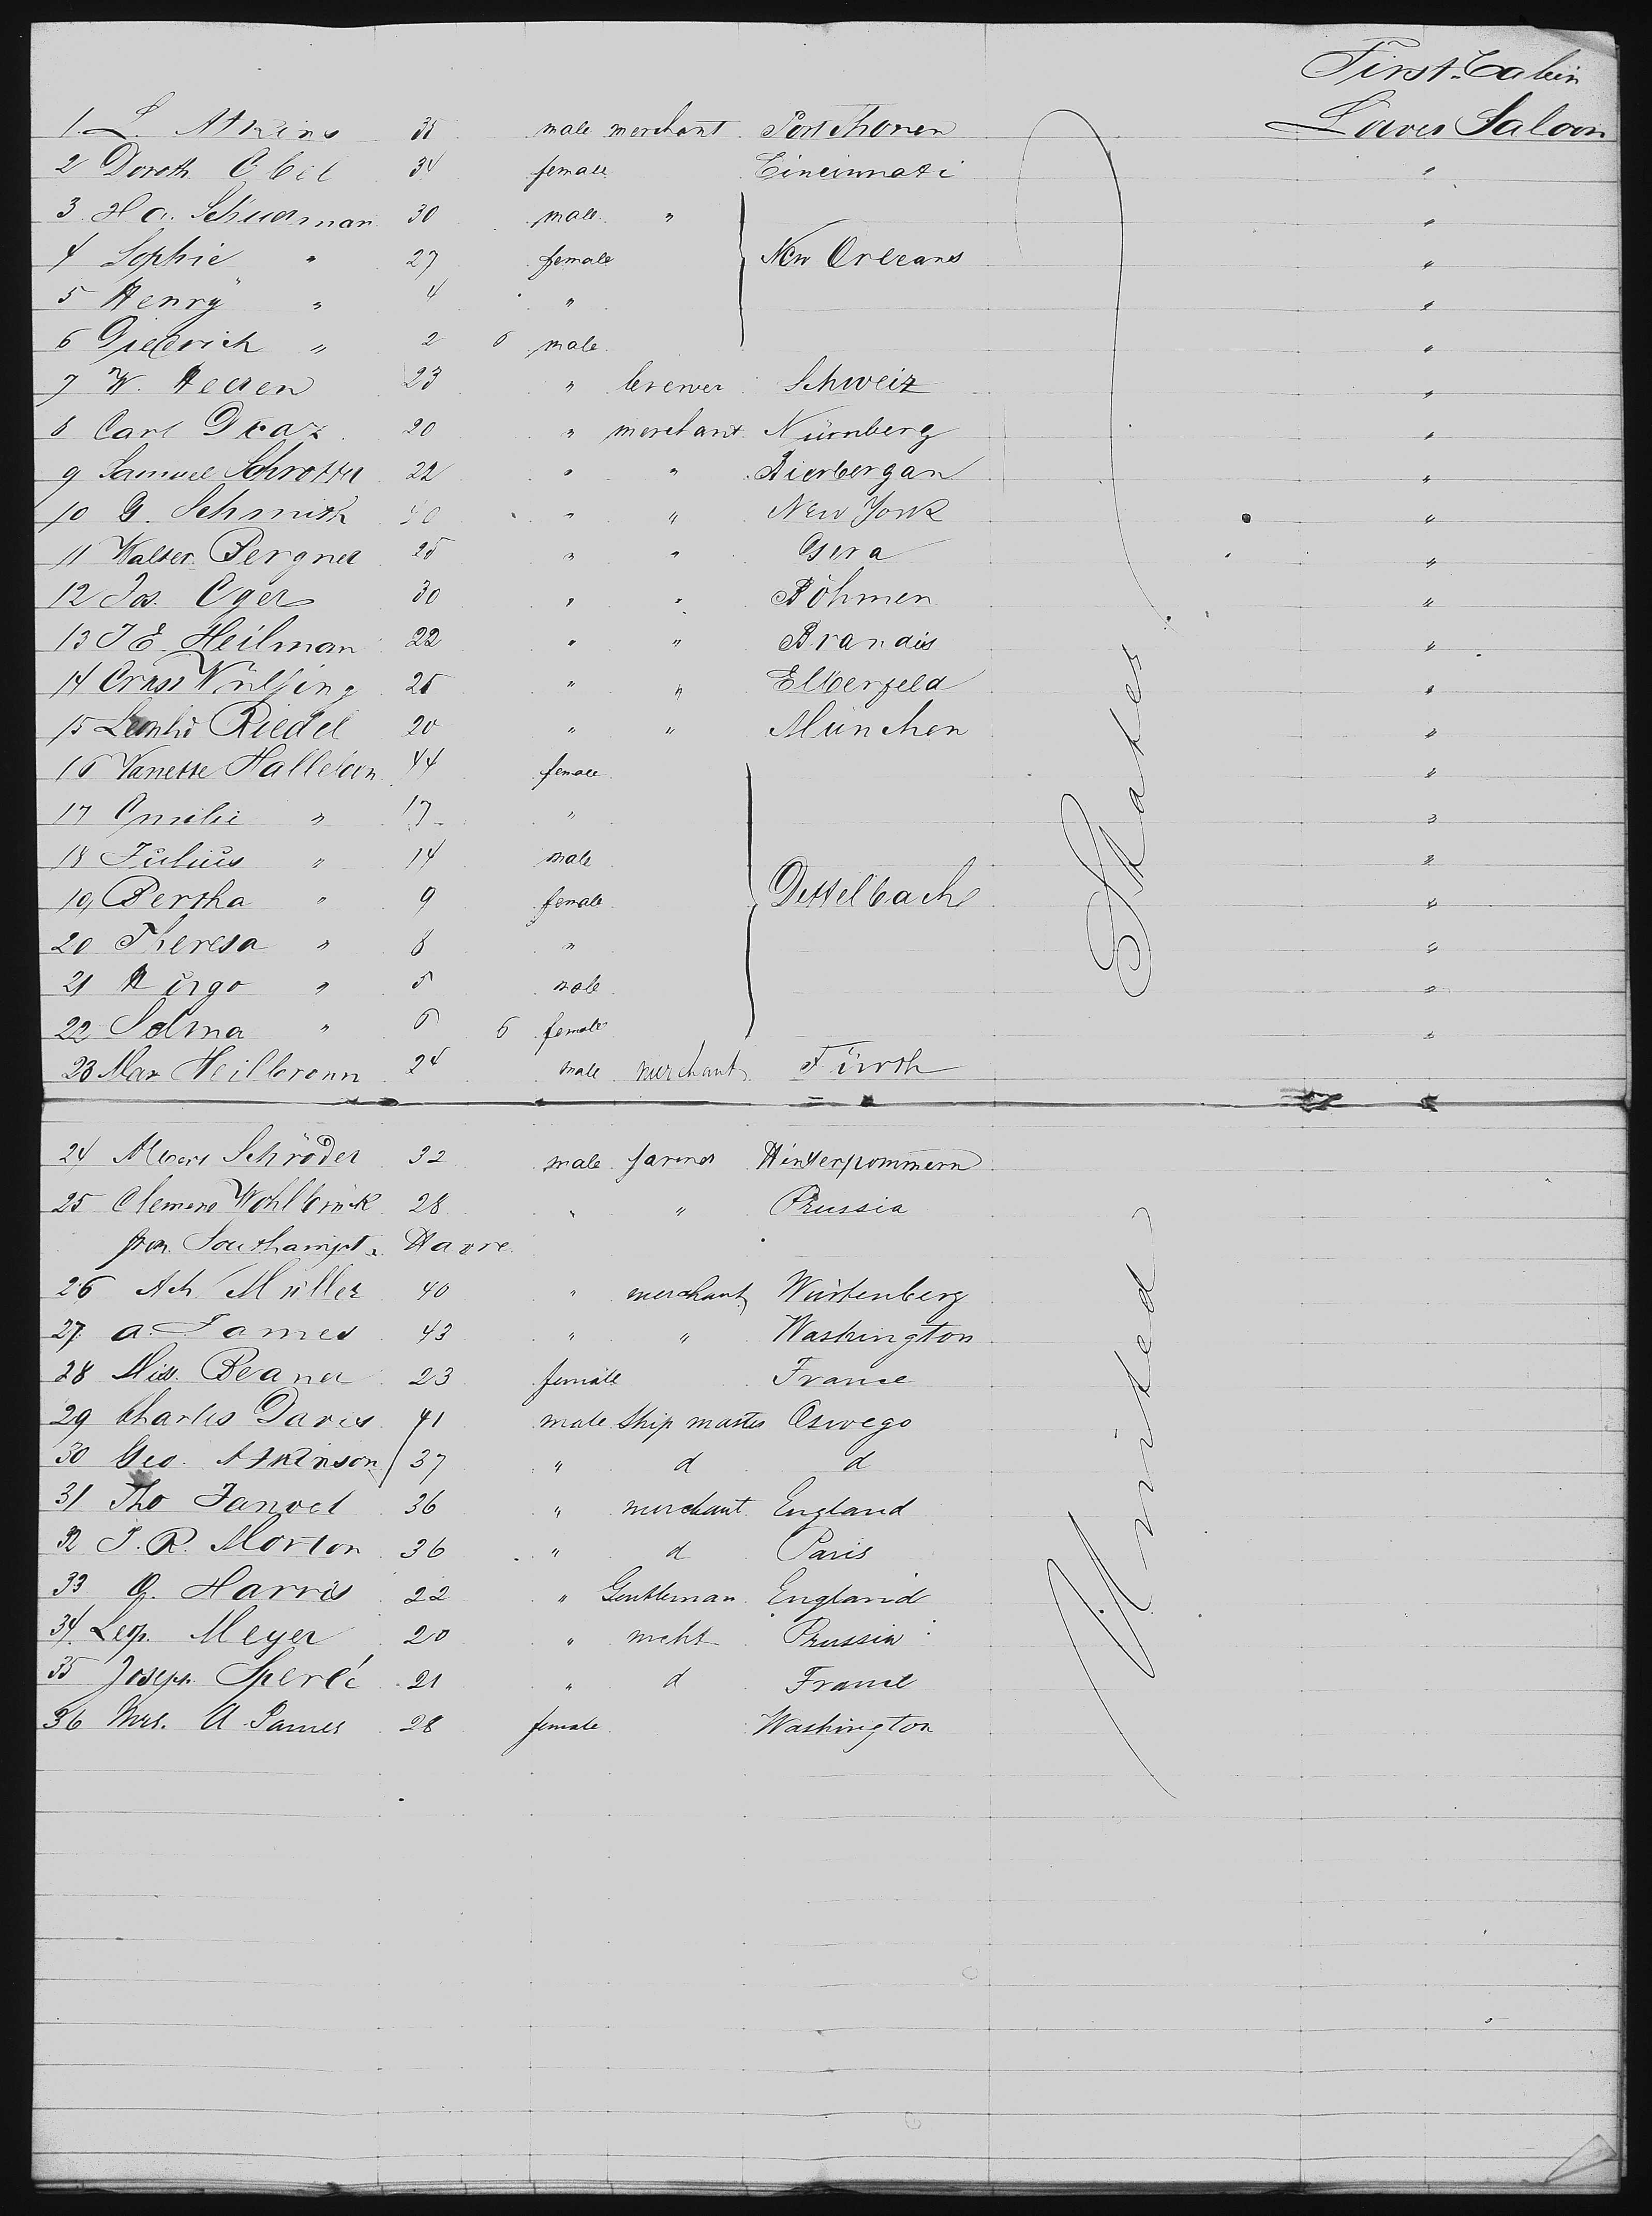 First Cabin
1 L. Atkins 35 male merchant Lower Saloon
2 Doroth 34 female Cincinnati "
3 30 male " "
4 Sophie " 27 female New Orleans "
5 Henry " 4 " "
6 Diedrich " 2 6 male "
7 W. Heeren 23 " brewer Schweiz "
8 Carl 20 " merchant Nürnberg "
9 Samuel 22 " " Bierbergan "
10 G. Schmith " " New York "
11 Walter Bergner 25 " " Gera "
12 Jos. Eger 30 " " Böhmen "
13 J E. Heilman 22 " " Brandis "
14 Wülfing 25 " " Elberfeld "
15 Leonhd Riedel 20 " " München "
16 44 female "
17 Emilie " 17 " "
18 Julius " 14 male "
19 Bertha " 9 female Dettelbach "
20 Theresa " 8 " "
21 Hugo " 5 male "
22 Selma " 6 female "
23 Max Heilbronn 24 male merchant Fürth
24 Schröder 32 male farmer Hinterpommern
25 Clemens Wohlbrück 28 " " Prussia
from Southampt & Havre
26 Ach. Müller 40 " merchant Würtenberg
27 A. James 43 " " Washington
28 Miss. Beaner 23 female France
29 Charles Davis 41 male Ship master Oswego
30 Geo. Atkinson 37 " d d
31 Tho 36 " merchant England
32 J. R. Morton 36 " d Paris
33 G. Harris 22 " Gentleman England
34 Leop. Meyer 20 " mcht Prussia
35 Joseph Sperlé 21 " d France
36 Mrs. A James 28 female Washington
United States